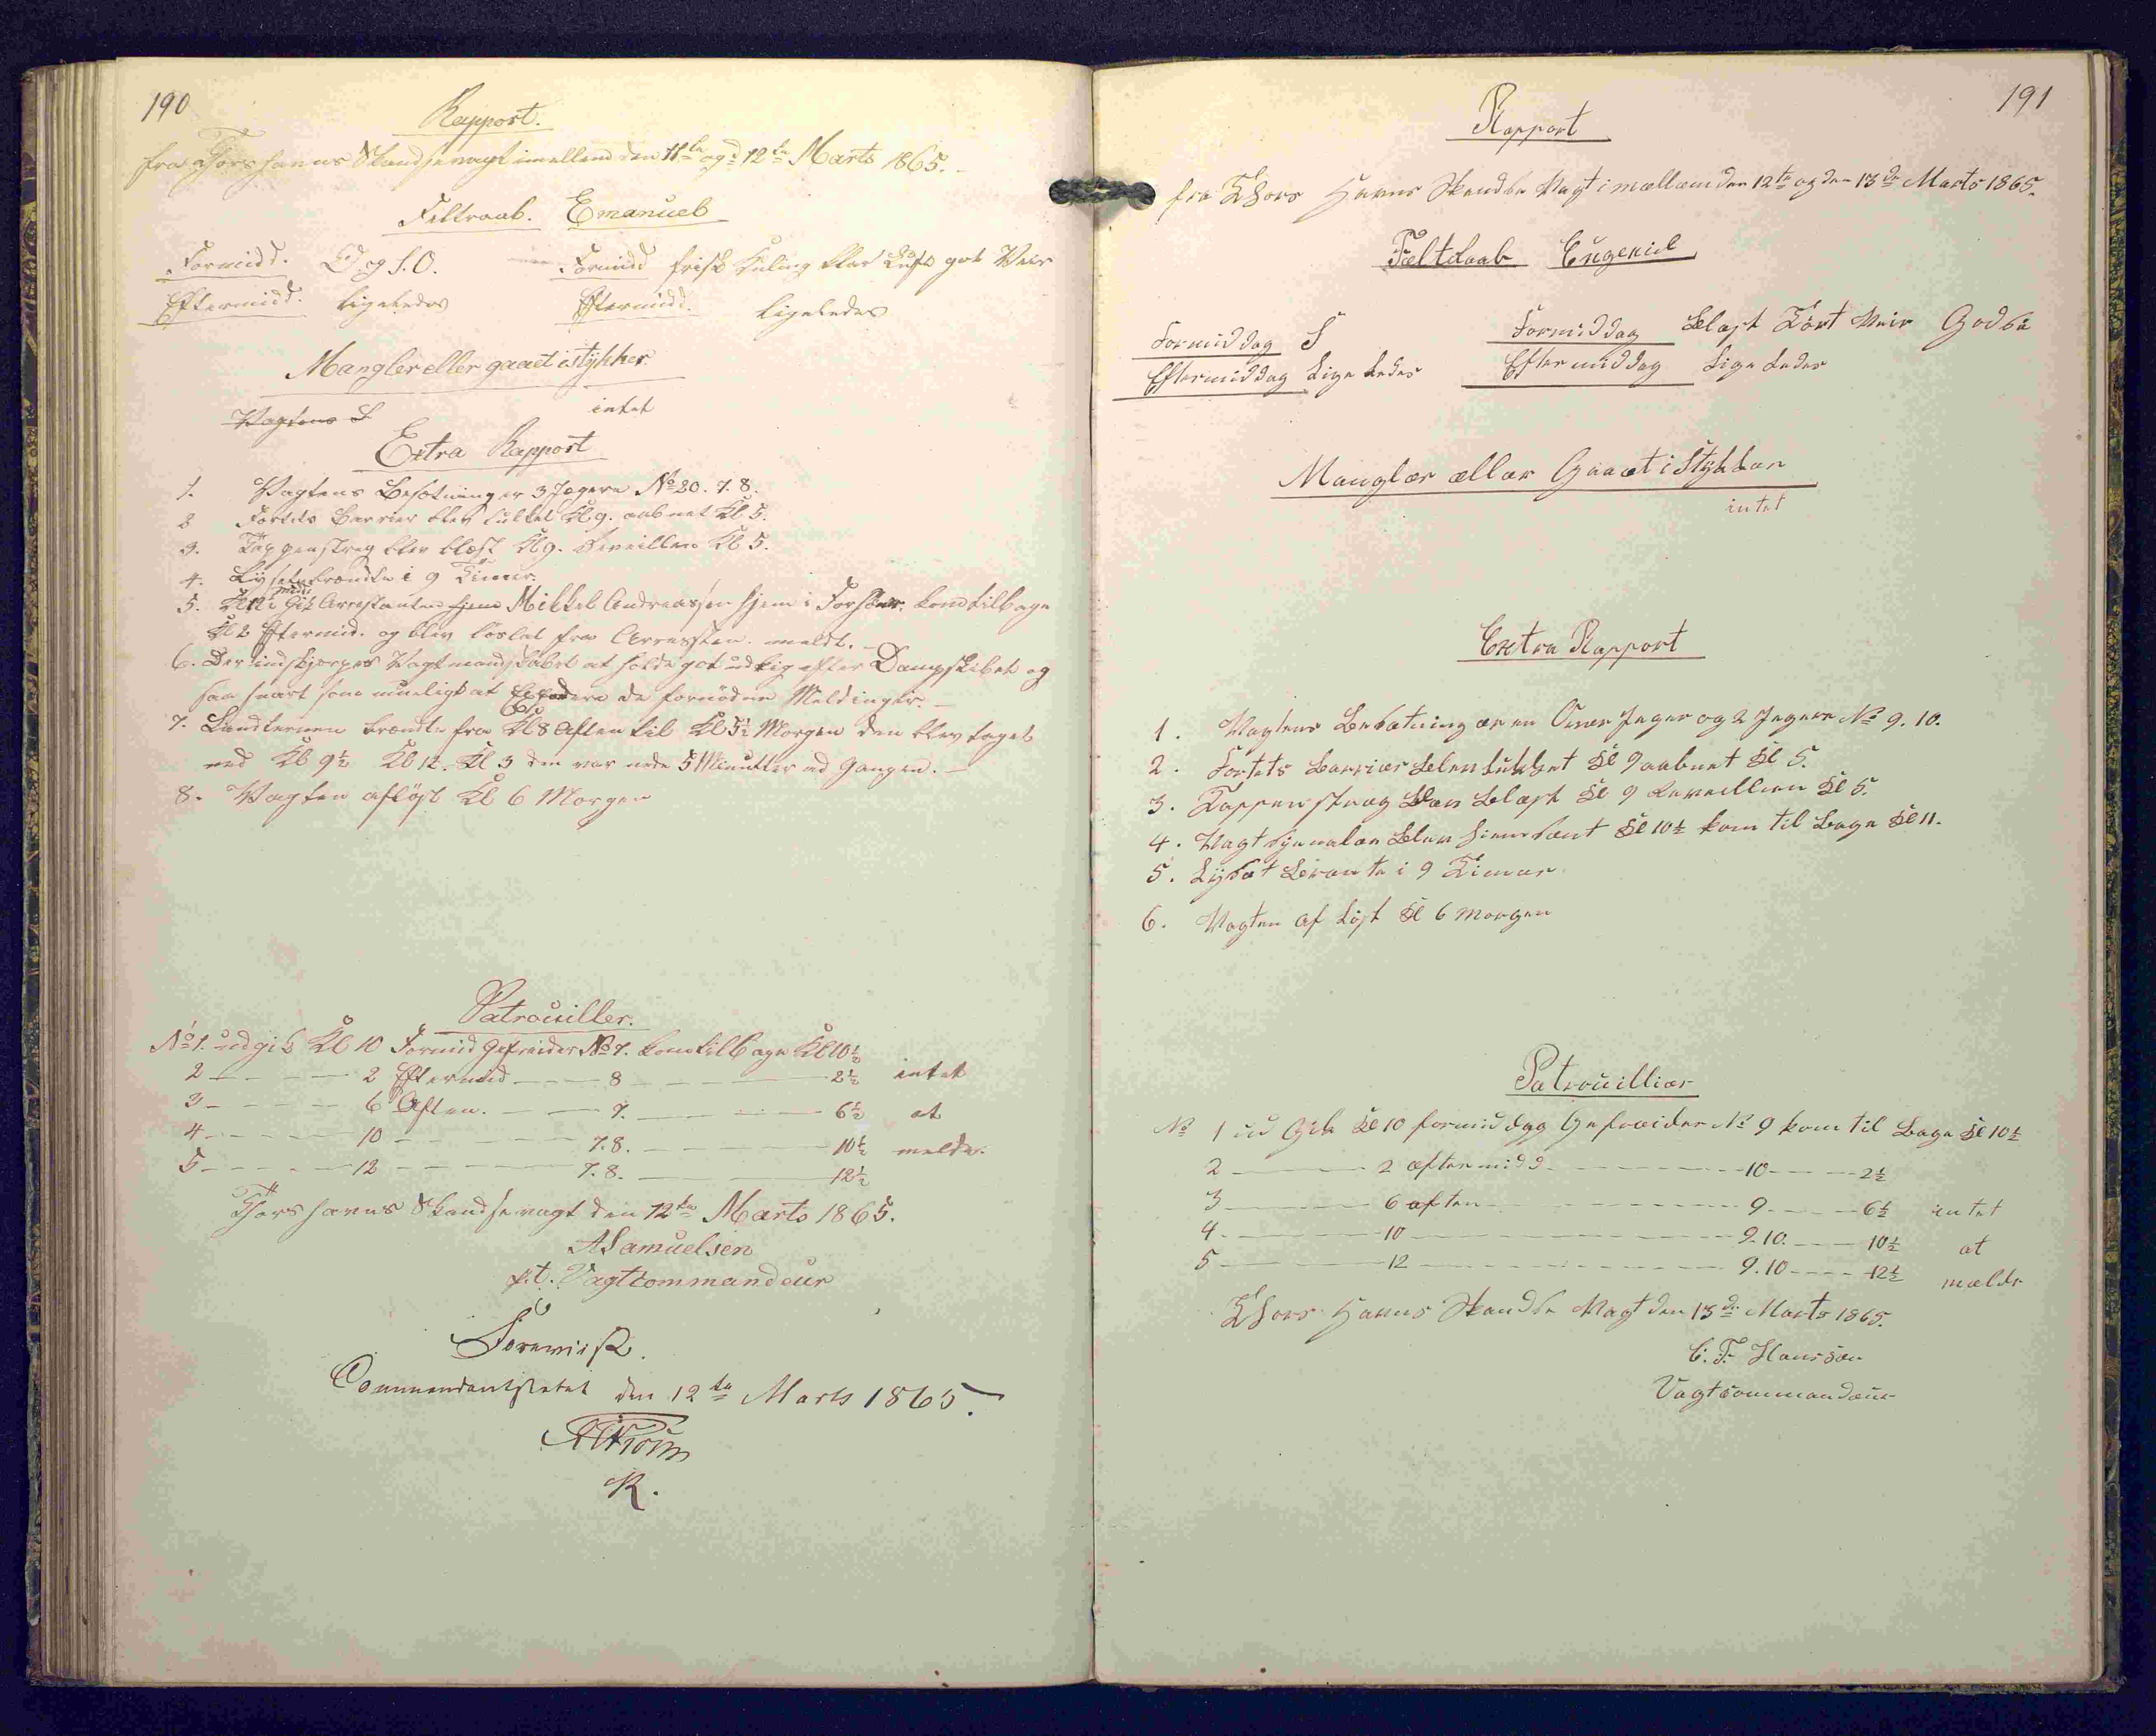 190
Rapport.
fra Thorshavns Skandsevagt imellem den 11te og d 12te Marts 1865.
Feltraab. Emanuel
Formidd. O og S.O. Formidd frisk Kuling klar Luft got Veir
Eftermidd. ligeledes Eftermidd. ligeledes
Mangler eller gaaet istykker.
Vagtens B intet
Extra Rapport
1. Vagtens Besetning er 3 Jægere No 20. 7. 8.
2 Fortets Barrier blev lukket Kl 9. aabnet Kl 5.
3. Tappenstreg blev blæst Kl 9. Reveillen Kl 5.
4. Lyset brændte i 9 Timer.
5. Kl 12 midd Gik Arrestanten hjem Mikkel Andreassen hjem i Forhør. kom tilbage
Kl 2 Eftermid. og blev løslat fra Arresten. meldt.
6. Der indskjerpes Vagtmandskabet at holde got udkig efter Dampskibet og
saa snart som mueligt at de fornødne Meldinger.
7. Landternen brændte fra Kl 8 Aften til Kl 5½ Morgen den blev taget
ned Kl 9½ Kl 12. Kl 3 den var nede 5 Minutter ad Gangen.
8. Vagten afløst Kl 6 Morgen
Patrouiller.
No 1. udgik Kl 10 Formid Gefreider No 7. kom tilbage Kl 10½
2 2 Eftermid 8 2½ intet
3 6 Aften. 7. 6½ at
4 10 7.8. 10½ melde.
5 12 7.8. 12½
Thorshavns Skandsevagt den 12te Marts 1865.
A Samuelsen
p.t. Vagtcommandeur
Forewiist.
Commendantskabet den 12te Marts 1865.
191
Rapport
fra Thors Havns Skandse Vagt imællem den 12te og den 13de Marts 1865.
Fæltraab Eugeniel
Formiddag S Formiddag Blæst Tört Veir Godse
Eftermiddag Lige ledes Eftermiddag Lige ledes
Manglær ællær Gaaet i Stykker
intet
Extra Rapport
1. Vagtens Besætning ær en Ower Jeger og 2 Jegere No 9. 10.
2. Fortets Barriær blev lukket Kl 9 aabnet Kl 5.
3. Tappenstræg blev blæst Kl 9 Reveillien Kl 5.
4. Vagt Sjenalær blev Kl 10½ kom til bage Kl 11.
5. Lyset brænte i 9 Timær
6. Vagten af Löst Kl 6 Morgen
Patrouilliær
No 1 ud Gik Kl 10 formiddag Gefræider No 9 kom til bage Kl 10½
2 2 æftermidd 10 2½
3 6 aften 9 6½ intet
4 10 9.10. 10½ at
5 12 9.10 12½ mælde
Thors Havns Skandse Vagt den 13de Marts 1865.
C. F. Hanssen
Vagtcommandeur